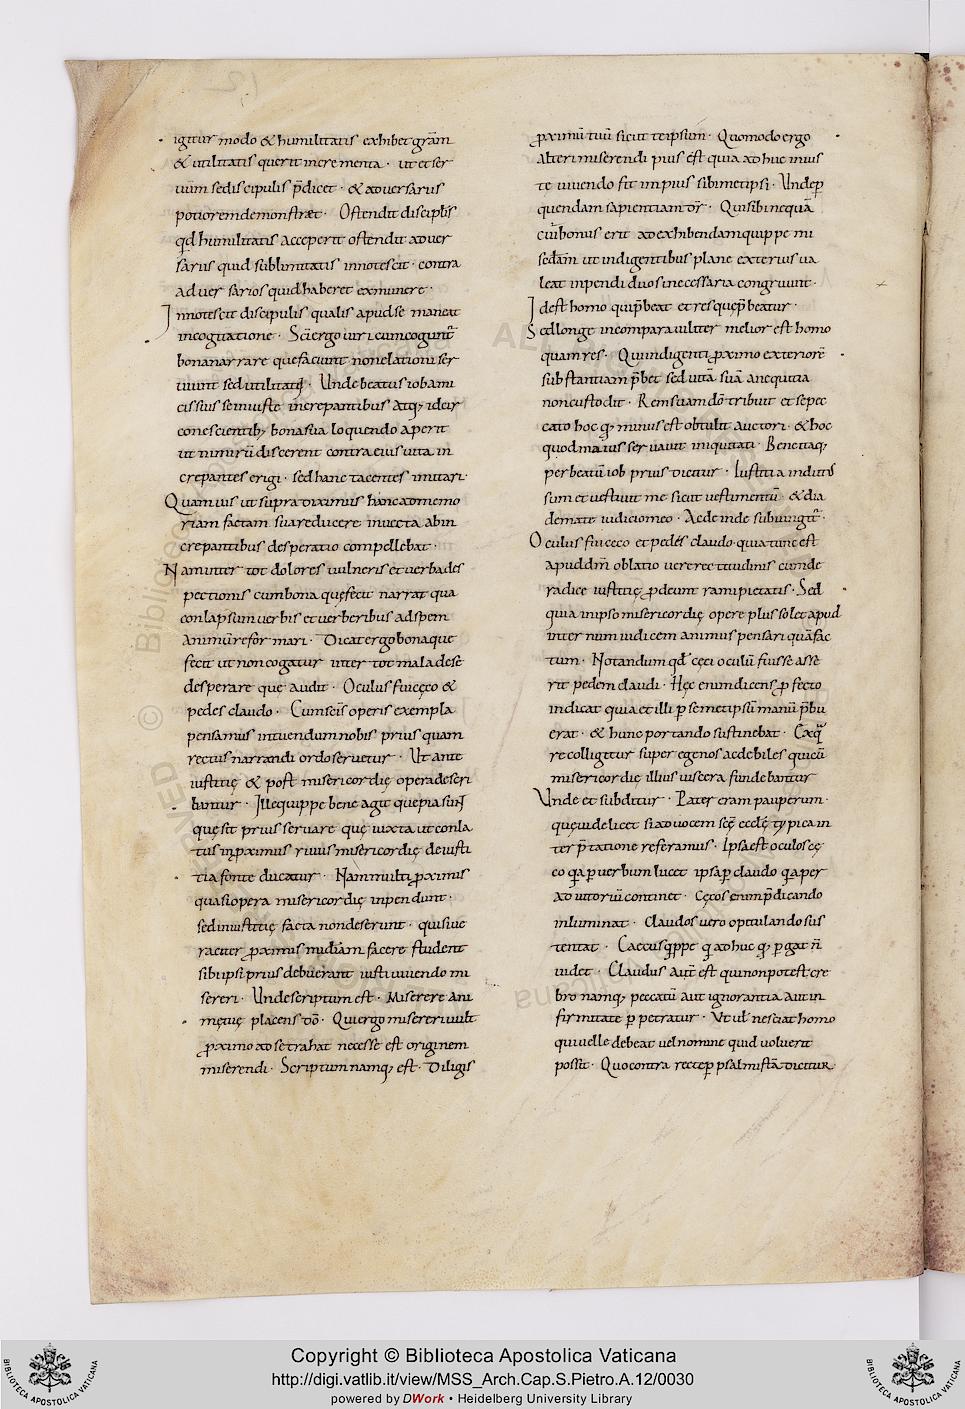 igitur modo & humilitatis exhibet grām
& utilitatis querit incrementa · ut et ser
uūm se discipulis p̄dicet · & aduersariis
potiorem demonstræt · Ostendit discipłis
qđ humilitatis acceperit ostendit aduer
sariis quid sublimitatis innotescit · contra
aduersarios quid haberet ex munere ·
Innotescit discipulis qualis apud se maneat
in cogitatione · Sc̄i ergo uiri cum cogunt̃
bona narrare que faciunt non elationi ser
uiunt sed utilitatiq; · Unde beatus iob ami
cis suis se iniuste increpantibus atq; idcir
co nescientib; bona sua loquendo aperit
ut nimirū discerent contra eius uita in
crepantes erigi · sed hanc tacentes imitari ·
Quamuis ut supra diximus hanc ad memo
riam factam sua reducere inuecta ab in
crepantibus desperatio compellebat ·
Nam inter tot dolores uulneris et uerba des
pectionis cum bona quę fecit narrat qua
conlapsum uerbis et uerberibus ad spem
animū reformari · Dicat ergo bona que
fecit ut non cogatur inter tot mala de se
desperare que audit · Oculus fui cęco &
pedes claudo · Cum sc̄is operis exempla
pensamus intuendum nobis prius quam
rectus narrandi ordo seruetur · Ut ante
iustitię & post misericordię opera descri
bantur · Ille quippe bene agit que pia sunt
quę sit prius seruare quę iuxta ut conla
tus in p̱ximus riuus misericordię de iusti
tia fonte ducatur · Nam multi p̱ximis
quasi opera misericordię inpendunt ·
sed iniustitię facta non deserunt · qui si ue
raciter p̱ximis mīdiam facere student
sibi ipsi prius debuerant iusti uiuendo mi
sereri · Unde scriptum est · Miserere ani
mę tuę placens dō · Qui ergo misereri uult
p̱ximo ad se trahat necesse est originem
miserendi · Scriptum namq; est · Diligis
p̱ximū tuū sicut te ipsum · Quomodo ergo
alteri miserendi pius est quia adhuc inius
te uiuendo fit impius sibimetipsi · Unde p̱
quendam sapientiam dr̄ · Qui sibi nequā
cui bonus erit ad exhibendam quippe mi
sedām ut indigentibus plane exterius ua
leat inpendi duo sunt necessaria congruunt ·
Id est homo qui p̄beat et res quę p̄beatur ·
Sed longe incomparauiliter melior est homo
quam res · Qui indigenti p̱ximo exteriorē
substantiam p̄bet sed uitā suā a nequitia
non custodit · Rem suam dō tribuit et se pec
cato hoc q; minus est obtulit auctori · & hoc
quod maius seruauit iniquitati · Bene itaq;
per beatū iob prius dicitur · Iustitia indutus
sum et uestiuit me sicut uestimentū · & dia
demate iudicio meo · Ac deinde subiungit̃ ·
Oculus fui ceco et pedes claudo · quia tunc est
apud dm̄ oblatio uere rectitudinis cum de
radice iustitię p̱deunt rami pietatis · Sed
quia in ipso misericordię opere plus solet apud
internum iudicem animus pensari quā fac
tum · Notandum qđ cęci oculū fuisse asse
rit pedem claudi · Hęc enim dicens p̱fecto
indicat quia et illi p̱ semetipsū manū p̄bu
erat · & hunc portando sustinebat · Ex q̃
re colligitur super egenos ac debiles quę cū
misericordię illius uiscera fundebantur
Unde et subditur · Pater eram pauperum ·
quę uidelicet si ad uocem scę ecclę typica in
terp̄tatione referamus · Ipsa est oculos cę
co q̃ p̱ uerbum lucet ipsa p̱ claudo q̃ per
adiutoriū continet · Cęcos enim p̄dicando
inluminat · Claudos uero opitulando sus
tentat · Caecus q̃ppe q̃ adhuc q; p̱gat n̄
uidet · Claudus aut̄ est qui non potest cre
bro namq; peccatū aut ignorantia aut in
firmitate p̱petratur · Ut uł nesciat homo
qui uelle debeat uel non me quid uoluerit
possit · Quo contra recte p̱ psalmistā dicitur
Copyright © Biblioteca Apostolica Vaticana
http://digi.vatlib.it/view/MSS_Arch.Cap.S.Pietro.A.12/0030
powered by DWork • Heidelberg University Library